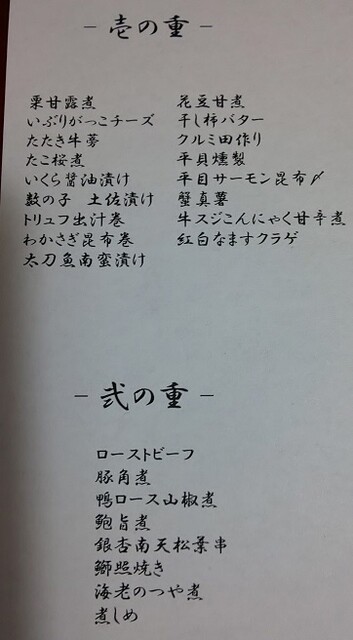 －壱の重－
栗甘露煮
いぶりがっこチーズ
たたき牛蒡
たこ桜煮
いくら醤油漬け
数の子　土佐漬け
トリュフ出汁巻
わかさぎ昆布巻
太刀魚南蛮漬け
花豆甘煮
干し柿バター
クルミ田作り
平貝燻製
平目サーモン昆布〆
蟹真薯
牛スジこんにゃく甘辛煮
紅白なますクラゲ
－弐の重－
ローストビーフ
豚角煮
鴨ロース山椒煮
鮑旨煮
銀杏南天松葉串
鰤照焼き
海老のつや煮
煮しめ